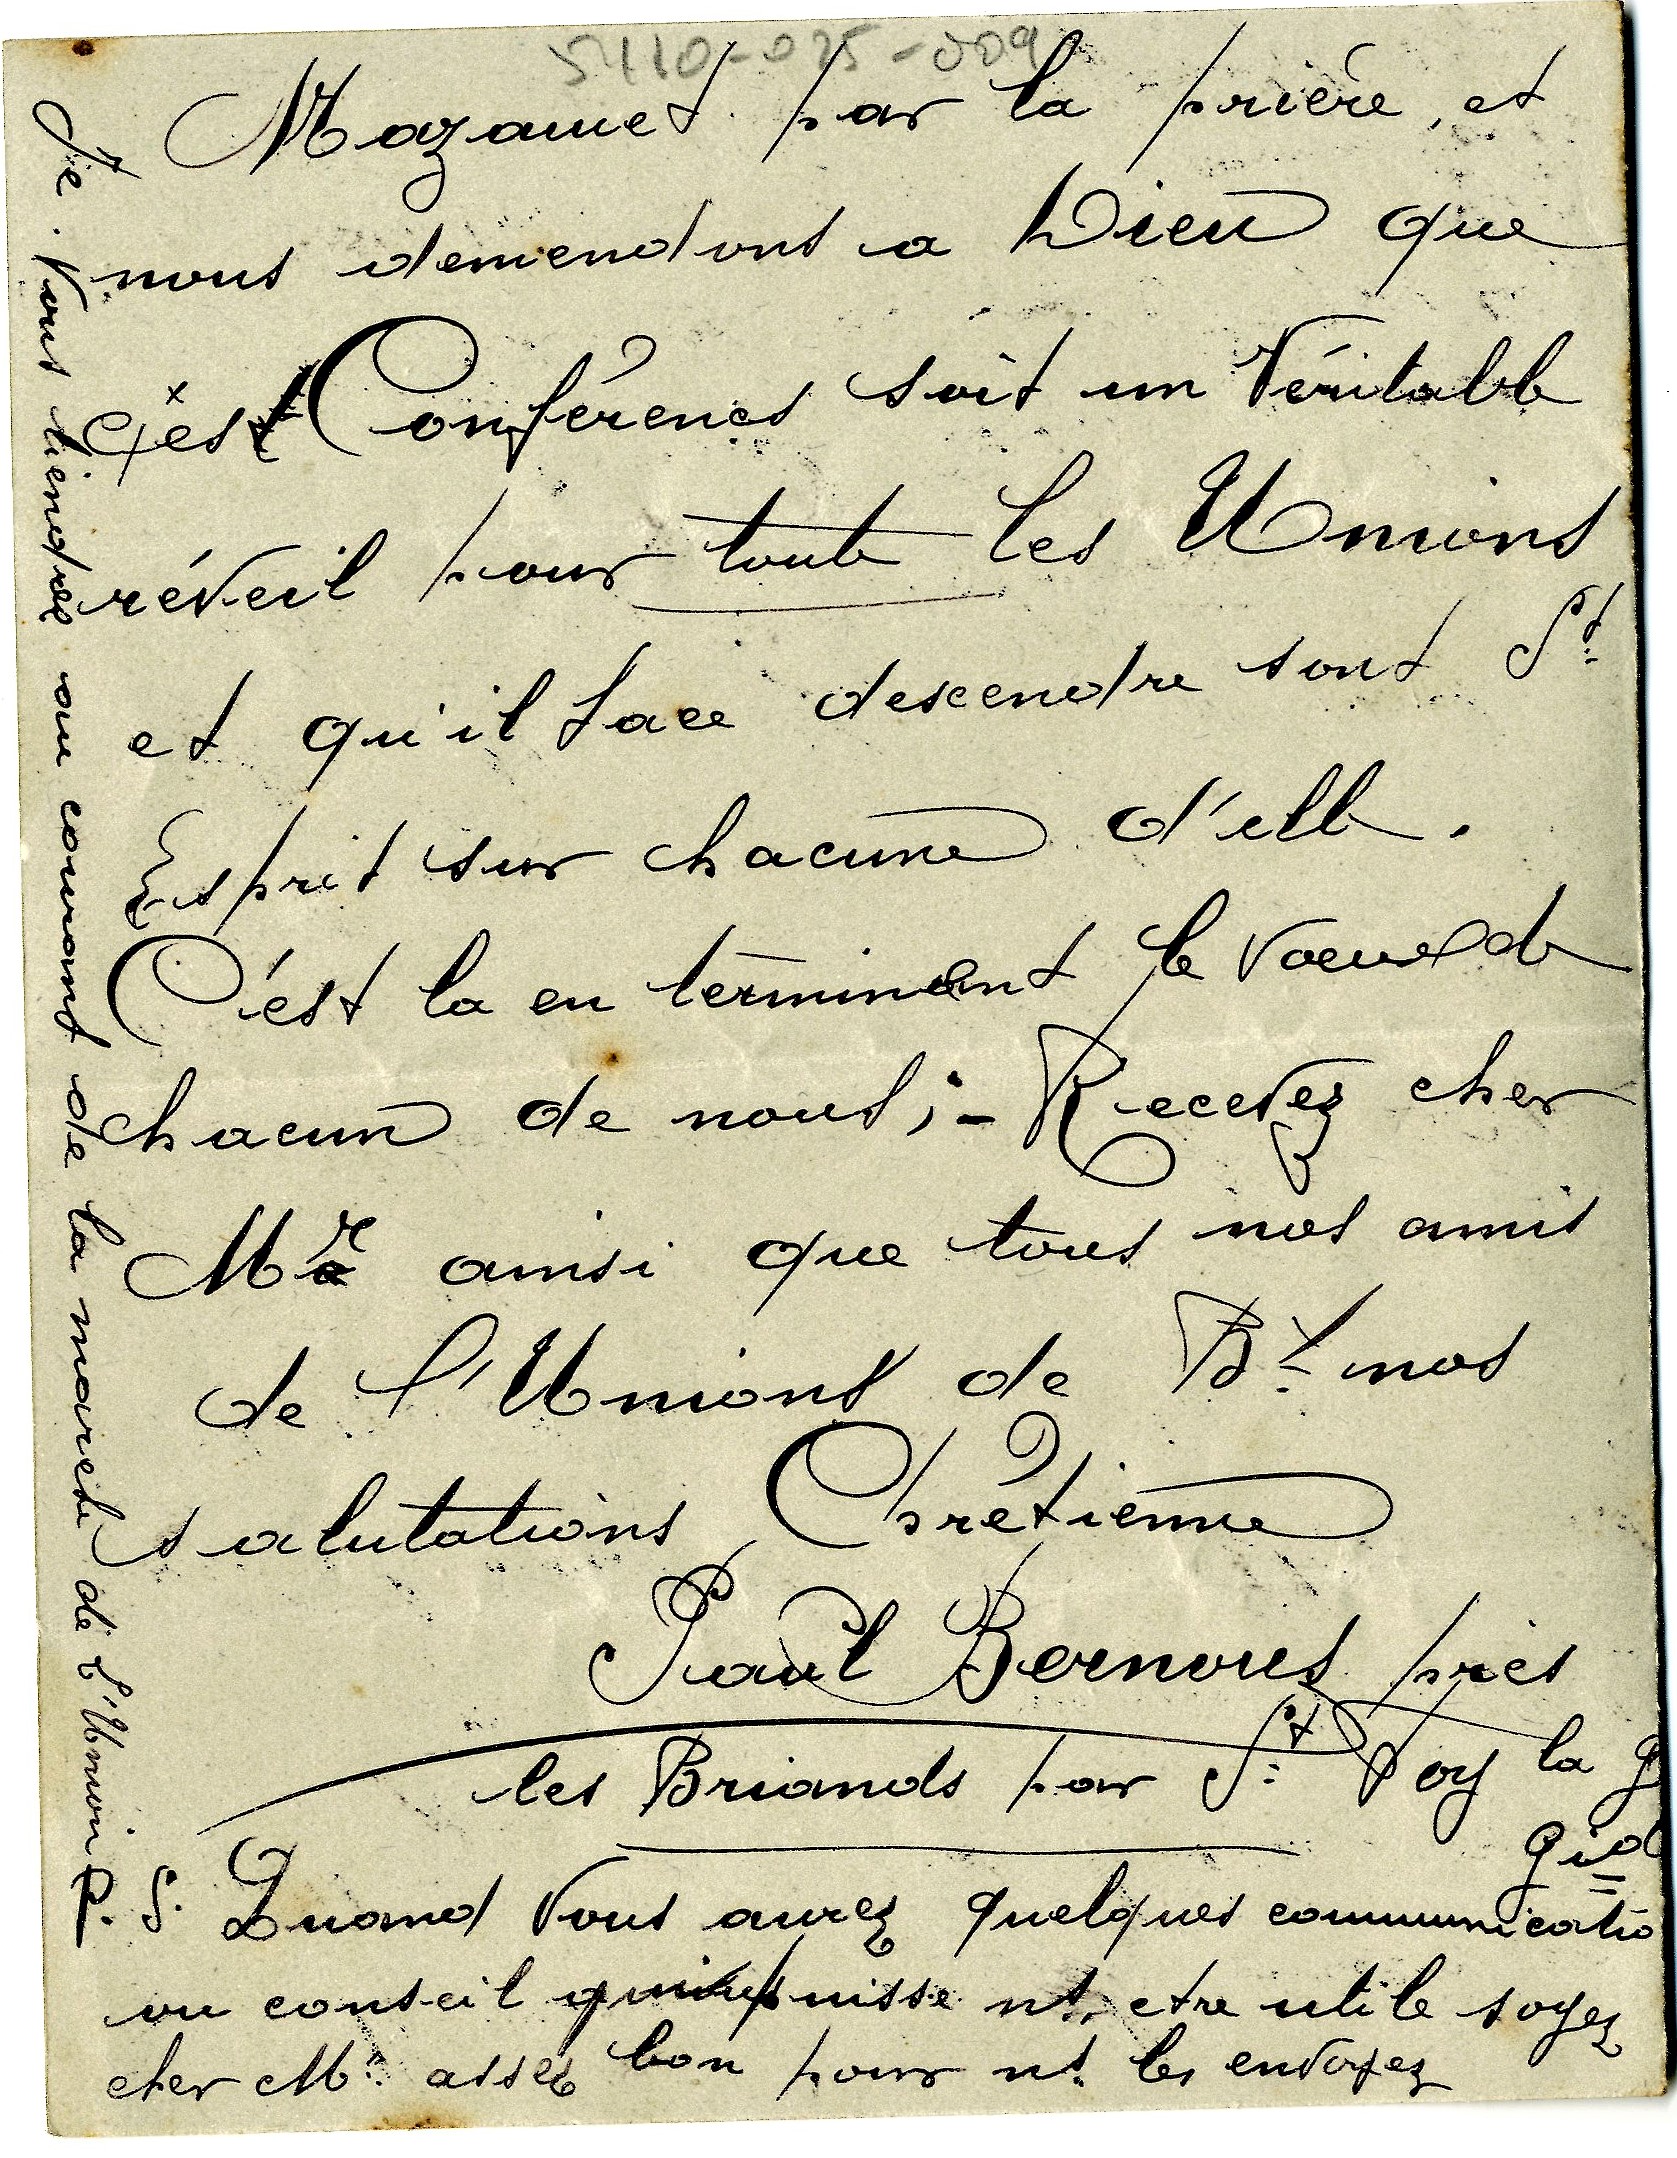 5410-025-009
Mazamet par la prière, et
nous demendons a Dieu que
Conférences soit un véritable
réveil pour toute les Unions
et qu'il face descendre sont St
Esprit sur chacune d'elle.
C'est la en terminent le voeux de
chacun de nous; - Recevez cher
Mr ainsi que tous nos amis
de l'Unions de Bx nos
salutations Chrétienne
Paul Bernous près
les Briands par St Foy la g
Gid
P.S. Quand vous aurez quelques communicatio
ou conseil puisse ns etre utile soyez
cher Mr assez bon pour ns les envoyez
Je vous tiendrée au courant de la marche de l'Union